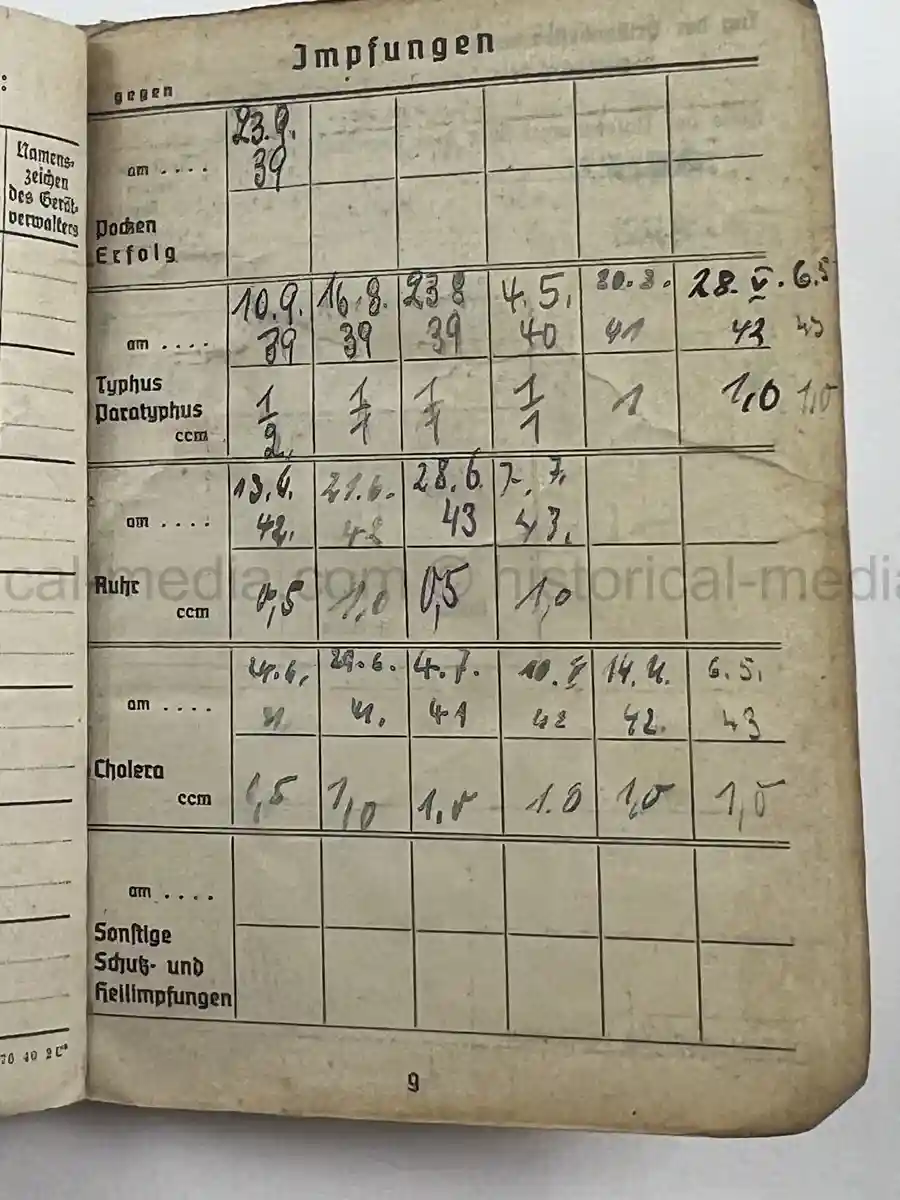 :
Namens-
zeichen
des Gerät-
verwalters
Impfungen
gegen
23.9.
am .... 39
Pocken
Erfolg
10.9. 16.8. 23 8 4.5. 20.8. 28.V. 6.5
am .... 39 39 39 40 41 43 43
Typhus
Paratyphus 1/2 1/1 1/1 1/1 1 1,0 1,0
ccm
13.6. 21.6. 28.6. 7.7.
am .... 42. 42 43 43.
Ruhr
ccm 0,5 1,0 0,5 1,0
cal-media.com © historical-media
29.6. 4.7. 10.V 14.4. 6.5.
am .... 41 42 42. 43
Cholera
ccm 0,5 1,0 1,0 1.0 1,0 1,0
am ....
Sonstige
Schutz- und
Heilimpfungen
9